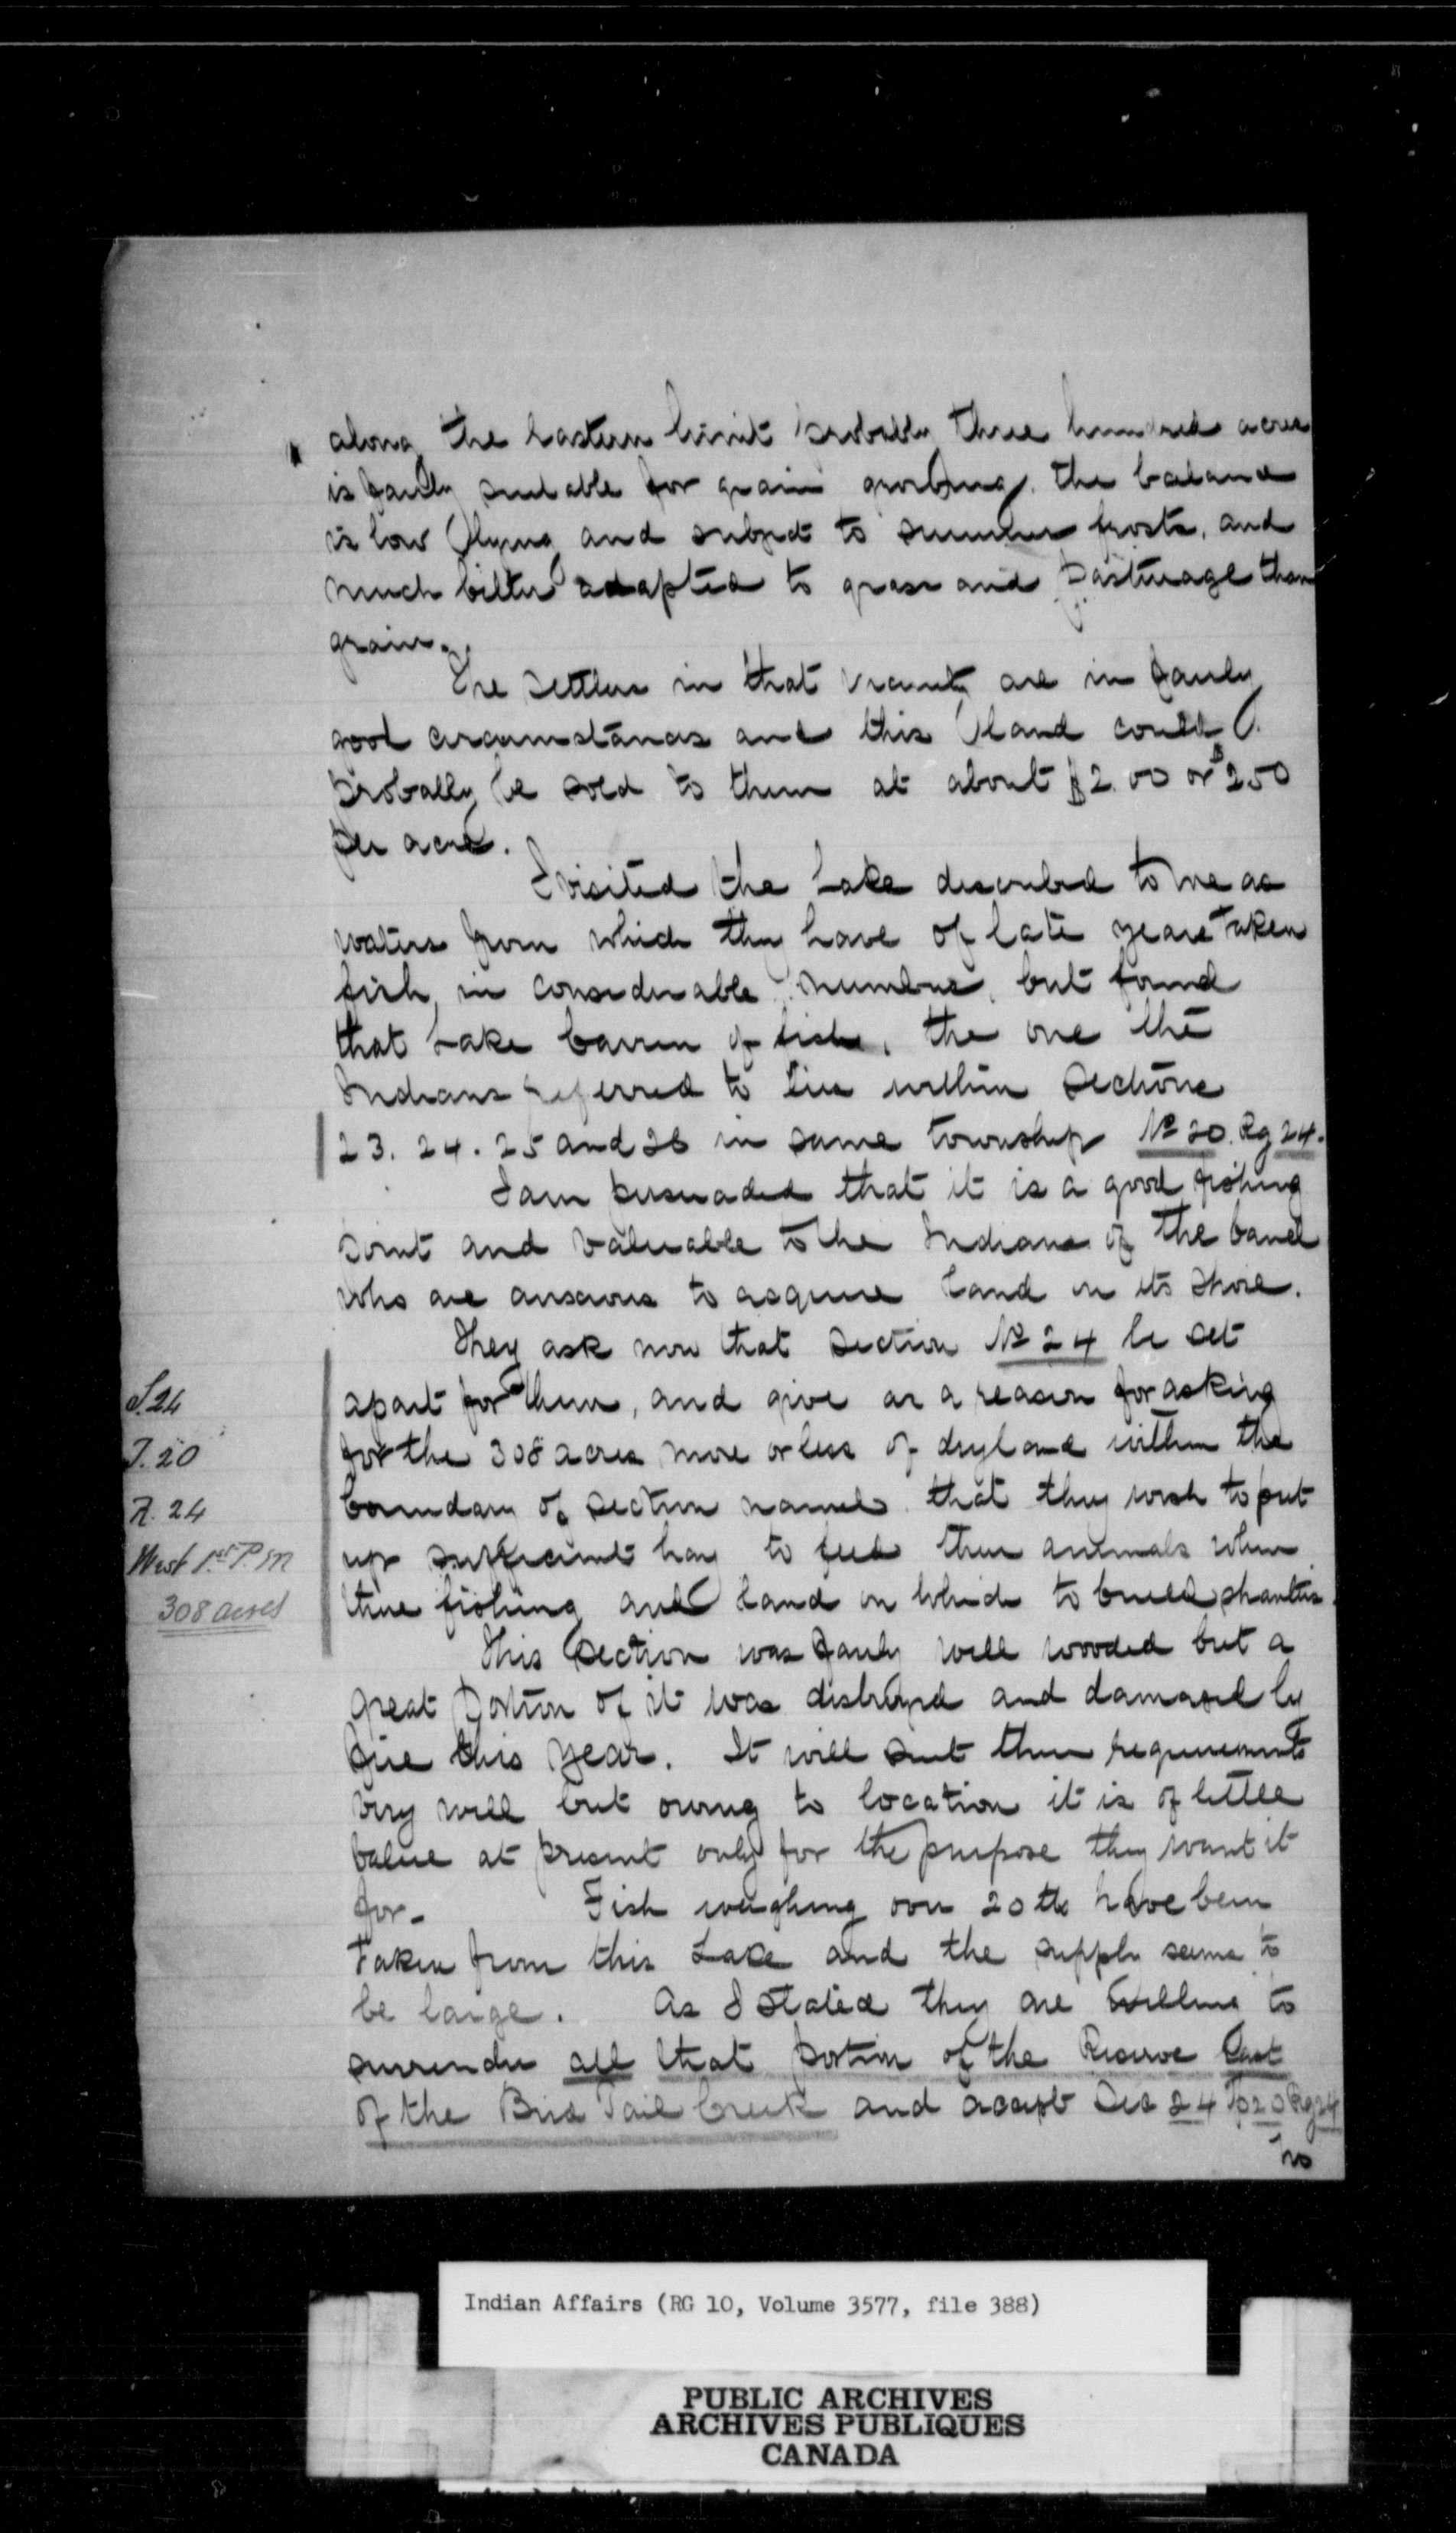 along the Eastern limit probably three hundred acres
is fairly suitable for grain growing, the balance
is low lying and subject to summer frosts, and
much better adapted to grass and pasturage than
grain.
The settlers in that vicinity are in fairly
good circumstances and this land could
probably be sold to them at about $2.00 or $2.50
per acre.
I visited the Lake described to me as
waters from which they have of late years taken
fish in considerable numbers, but found
that Lake barren of fish, the one the
Indians referred to lies within Sections
23. 24. 25 and 26 in same township No 20. Rg 24.
I am persuaded that it is a good fishing
point and valuable to the Indians of the band
who are anxious to acquire land on its shore.
They ask now that Section No 24 be set
apart for them, and give as a reason for asking
for the 308 acres more or less of dry land within the
boundary of section named that they wish to put
up sufficient hay to feed their animals when
there fishing and land on which to build shanties.
S. 24
T. 20
R. 24
West 1st P. M
308 acres
This Section was fairly well wooded but a
great portion of it was destroyed and damaged by
fire this year. It will suit their requirements
very well but owing to location it is of little
value at present only for the purpose they want it
for. Fish weighing over 20 lbs have been
taken from this Lake and the supply seems to
be large. As I stated they are willing to
surrender all that portion of the Reserve East
of the Bird Tail Creek and accept Sec 24 Tp 20 Rg 24
no
Indian Affairs (RG 10, Volume 3577, file 388)
PUBLIC ARCHIVES
ARCHIVES PUBLIQUES
CANADA